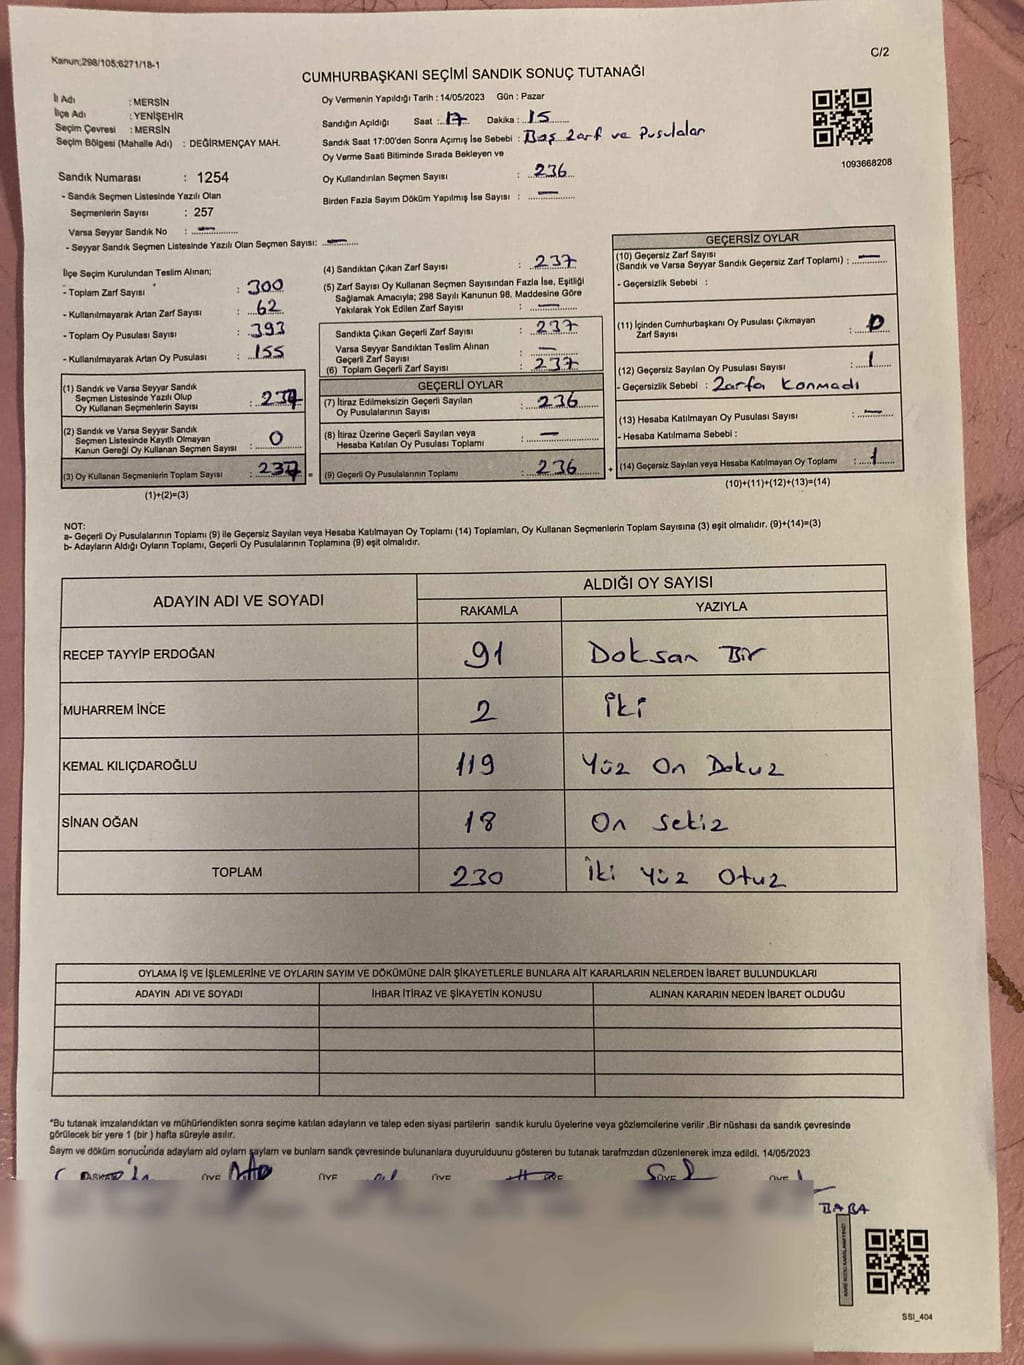 Kanun;298/105;6271/18-1
C/2
CUMHURBAŞKANI SEÇİMİ SANDIK SONUÇ TUTANAĞI
İl Adı : MERSİN
İlçe Adı : YENİŞEHİR
Seçim Çevresi : MERSİN
Seçim Bölgesi (Mahalle Adı) : DEĞİRMENÇAY MAH.
Sandık Numarası : 1254
- Sandık Seçmen Listesinde Yazılı Olan
Seçmenlerin Sayısı : 257
Varsa Seyyar Sandık No : —
- Seyyar Sandık Seçmen Listesinde Yazılı Olan Seçmen Sayısı: —
Oy Vermenin Yapıldığı Tarih : 14/05/2023 Gün : Pazar
Sandığın Açıldığı Saat : 17 Dakika : 15
Sandık Saat 17:00'den Sonra Açılmış İse Sebebi : Boş Zarf ve Pusulalar
Oy Verme Saati Bitiminde Sırada Bekleyen ve
Oy Kullandırılan Seçmen Sayısı : 236
Birden Fazla Sayım Döküm Yapılmış İse Sayısı : —
1093668208
İlçe Seçim Kurulundan Teslim Alınan;
- Toplam Zarf Sayısı : 300
- Kullanılmayarak Artan Zarf Sayısı : 62
- Toplam Oy Pusulası Sayısı : 393
- Kullanılmayarak Artan Oy Pusulası : 155
(1) Sandık ve Varsa Seyyar Sandık
Seçmen Listesinde Yazılı Olup
Oy Kullanan Seçmenlerin Sayısı : 237
(2) Sandık ve Varsa Seyyar Sandık
Seçmen Listesinde Kayıtlı Olmayan
Kanun Gereği Oy Kullanan Seçmen Sayısı : 0
(3) Oy Kullanan Seçmenlerin Toplam Sayısı : 237 =
(1)+(2)=(3)
(4) Sandıktan Çıkan Zarf Sayısı : 237
(5) Zarf Sayısı Oy Kullanan Seçmen Sayısından Fazla İse, Eşitliği
Sağlamak Amacıyla; 298 Sayılı Kanunun 98. Maddesine Göre
Yakılarak Yok Edilen Zarf Sayısı : —
Sandıkta Çıkan Geçerli Zarf Sayısı : 237
Varsa Seyyar Sandıktan Teslim Alınan
Geçerli Zarf Sayısı : —
(6) Toplam Geçerli Zarf Sayısı : 237
GEÇERLİ OYLAR
(7) İtiraz Edilmeksizin Geçerli Sayılan
Oy Pusulalarının Sayısı : 236
(8) İtiraz Üzerine Geçerli Sayılan veya
Hesaba Katılan Oy Pusulası Toplamı : —
(9) Geçerli Oy Pusulalarının Toplamı : 236 +
GEÇERSİZ OYLAR
(10) Geçersiz Zarf Sayısı
(Sandık ve Varsa Seyyar Sandık Geçersiz Zarf Toplamı) : —
- Geçersizlik Sebebi :
(11) İçinden Cumhurbaşkanı Oy Pusulası Çıkmayan
Zarf Sayısı : 0
(12) Geçersiz Sayılan Oy Pusulası Sayısı : 1
- Geçersizlik Sebebi : Zarfa Konmadı
(13) Hesaba Katılmayan Oy Pusulası Sayısı : —
- Hesaba Katılmama Sebebi :
(14) Geçersiz Sayılan veya Hesaba Katılmayan Oy Toplamı : 1
(10)+(11)+(12)+(13)=(14)
NOT:
a- Geçerli Oy Pusulalarının Toplamı (9) ile Geçersiz Sayılan veya Hesaba Katılmayan Oy Toplamı (14) Toplamları, Oy Kullanan Seçmenlerin Toplam Sayısına (3) eşit olmalıdır. (9)+(14)=(3)
b- Adayların Aldığı Oyların Toplamı, Geçerli Oy Pusulalarının Toplamına (9) eşit olmalıdır.
ADAYIN ADI VE SOYADI
ALDIĞI OY SAYISI
RAKAMLA YAZIYLA
RECEP TAYYİP ERDOĞAN 91 Doksan Bir
MUHARREM İNCE 2 İki
KEMAL KILIÇDAROĞLU 119 Yüz On Dokuz
SİNAN OĞAN 18 On Sekiz
TOPLAM 230 İki Yüz Otuz
OYLAMA İŞ VE İŞLEMLERİNE VE OYLARIN SAYIM VE DÖKÜMÜNE DAİR ŞİKAYETLERLE BUNLARA AİT KARARLARIN NELERDEN İBARET BULUNDUKLARI
ADAYIN ADI VE SOYADI İHBAR İTİRAZ VE ŞİKAYETİN KONUSU ALINAN KARARIN NEDEN İBARET OLDUĞU
*Bu tutanak imzalandıktan ve mühürlendikten sonra seçime katılan adayların ve talep eden siyasi partilerin sandık kurulu üyelerine veya gözlemcilerine verilir .Bir nüshası da sandık çevresinde
görülecek bir yere 1 (bir ) hafta süreyle asılır.
Sayım ve döküm sonucunda adaylam ald oylam saylam ve bunlam sandk çevresinde bulunanlara duyurulduunu gösteren bu tutanak tarafmzdan düzenlenerek imza edildi. 14/05/2023
ÜYE ÜYE ÜYE ÜYE ÜYE
BABA
SSI_404